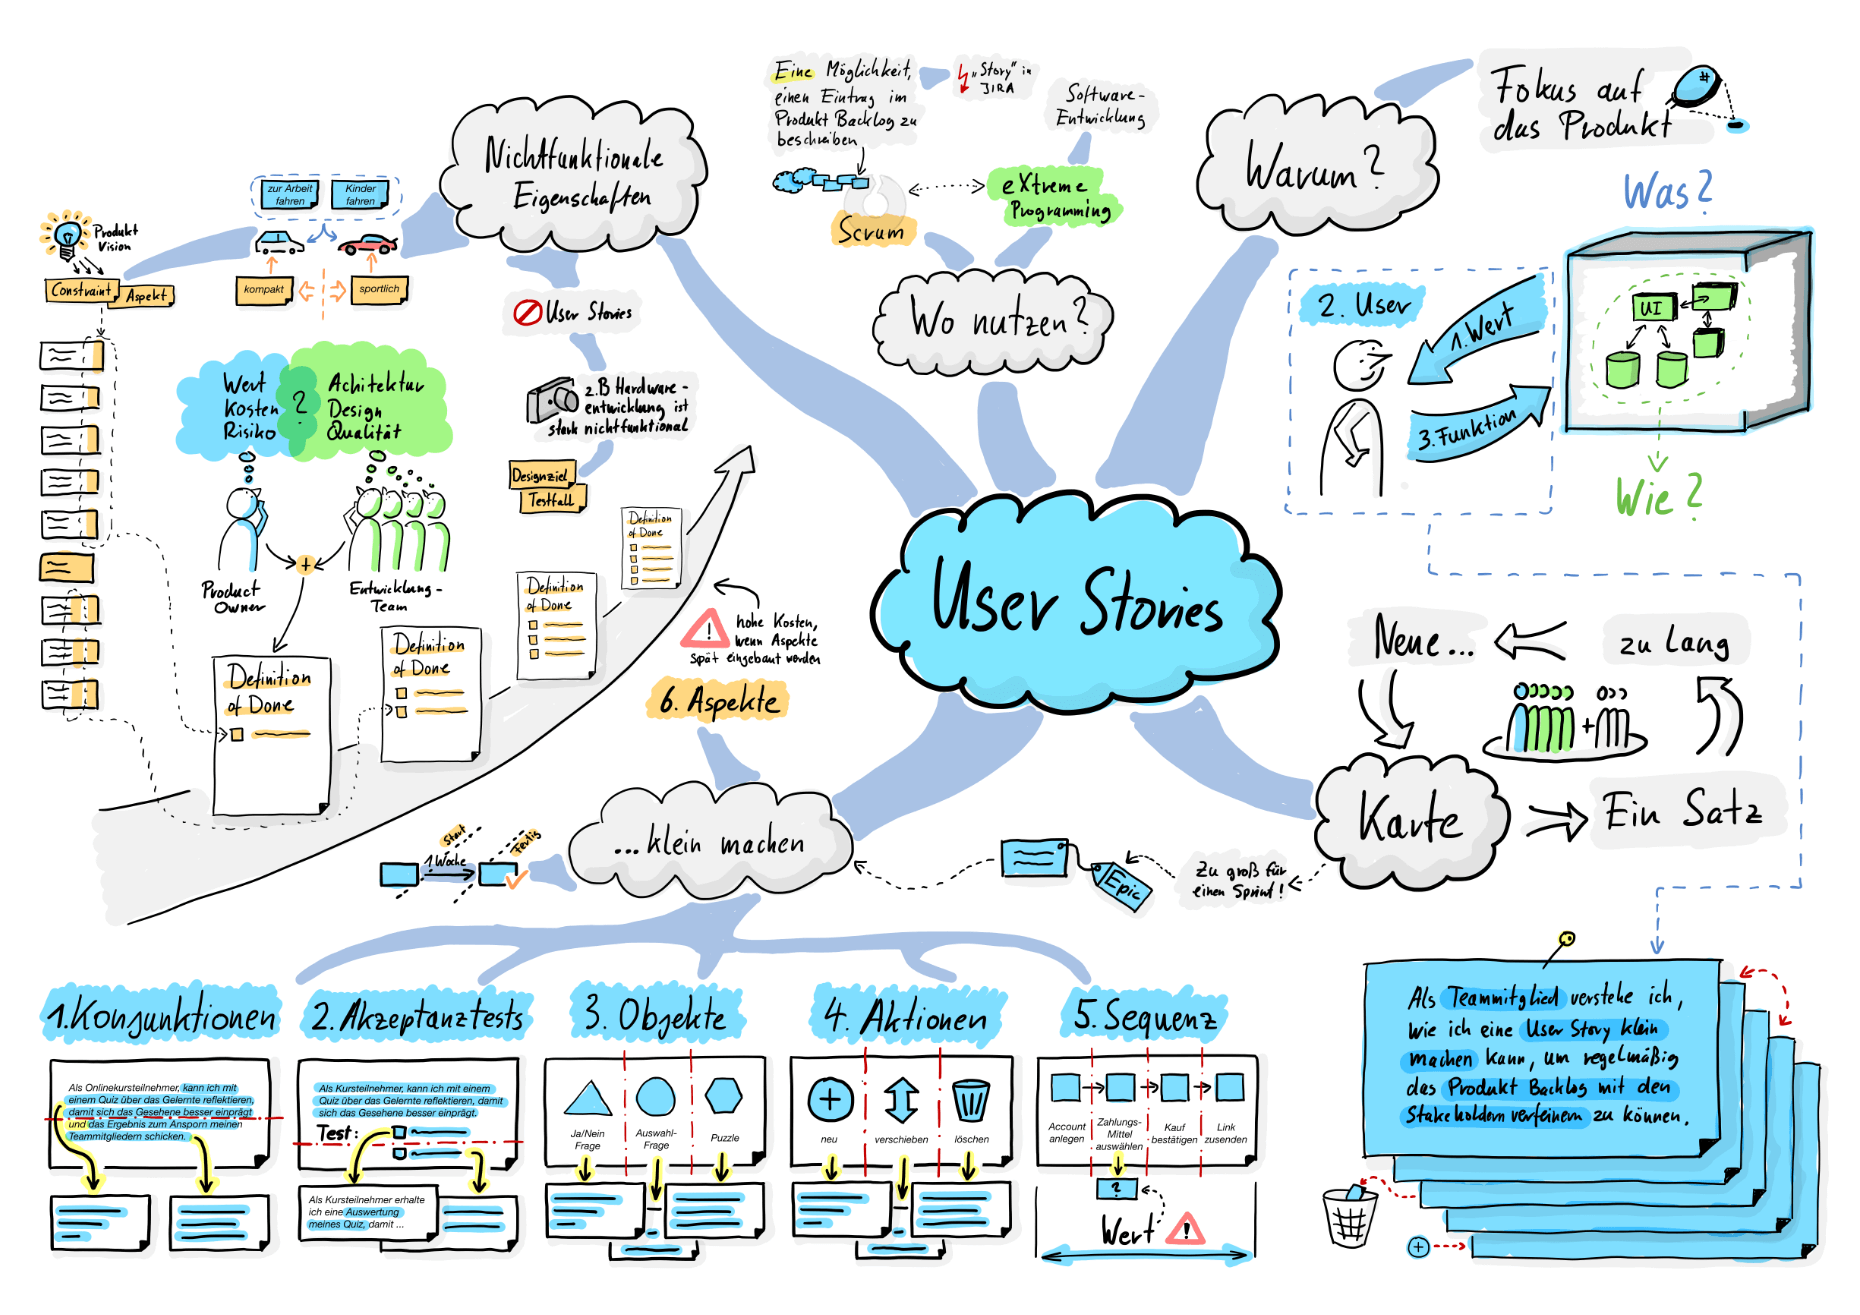 User Stories
Warum?
Fokus auf
das Produkt
Was?
2. User
1. Wert
3. Funktion
UI
Wie?
Wo nutzen?
Eine Möglichkeit,
einen Eintrag im
Produkt Backlog zu
beschreiben
„Story" in
JIRA
Software-
Entwicklung
Scrum
eXtreme
Programming
Nichtfunktionale
Eigenschaften
zur Arbeit
fahren
Kinder
fahren
kompakt
sportlich
Produkt
Vision
Constraint
Aspekt
User Stories
z.B Hardware-
entwicklung ist
stark nichtfunktional
Designziel
Testfall
Wert
Kosten
Risiko
?
Achitektur
Design
Qualität
Product
Owner
+
Entwicklung-
Team
Definition
of Done
Definition
of Done
Definition
of Done
Definition
of Done
!
hohe Kosten,
wenn Aspekte
spät eingebaut werden
6. Aspekte
...klein machen
Start
1 Woche
Fertig
Karte
Ein Satz
zu Lang
Neue...
+
Zu groß für
einen Sprint!
Epic
1. Konjunktionen
Als Onlinekursteilnehmer, kann ich mit
einem Quiz über das Gelernte reflektieren,
damit sich das Gesehene besser einprägt
und das Ergebnis zum Ansporn meinen
Teammitgliedern schicken.
2. Akzeptanztests
Als Kursteilnehmer, kann ich mit einem
Quiz über das Gelernte reflektieren, damit
sich das Gesehene besser einprägt.
Test:
Als Kursteilnehmer erhalte
ich eine Auswertung
meines Quiz, damit ...
3. Objekte
Ja/Nein
Frage
Auswahl-
Frage
Puzzle
4. Aktionen
neu
verschieben
löschen
5. Sequenz
Account
anlegen
Zahlungs-
Mittel
auswählen
Kauf
bestätigen
Link
zusenden
?
Wert
!
Als Teammitglied verstehe ich,
wie ich eine User Story klein
machen kann, um regelmäßig
das Produkt Backlog mit den
Stakeholdern verfeinern zu können.